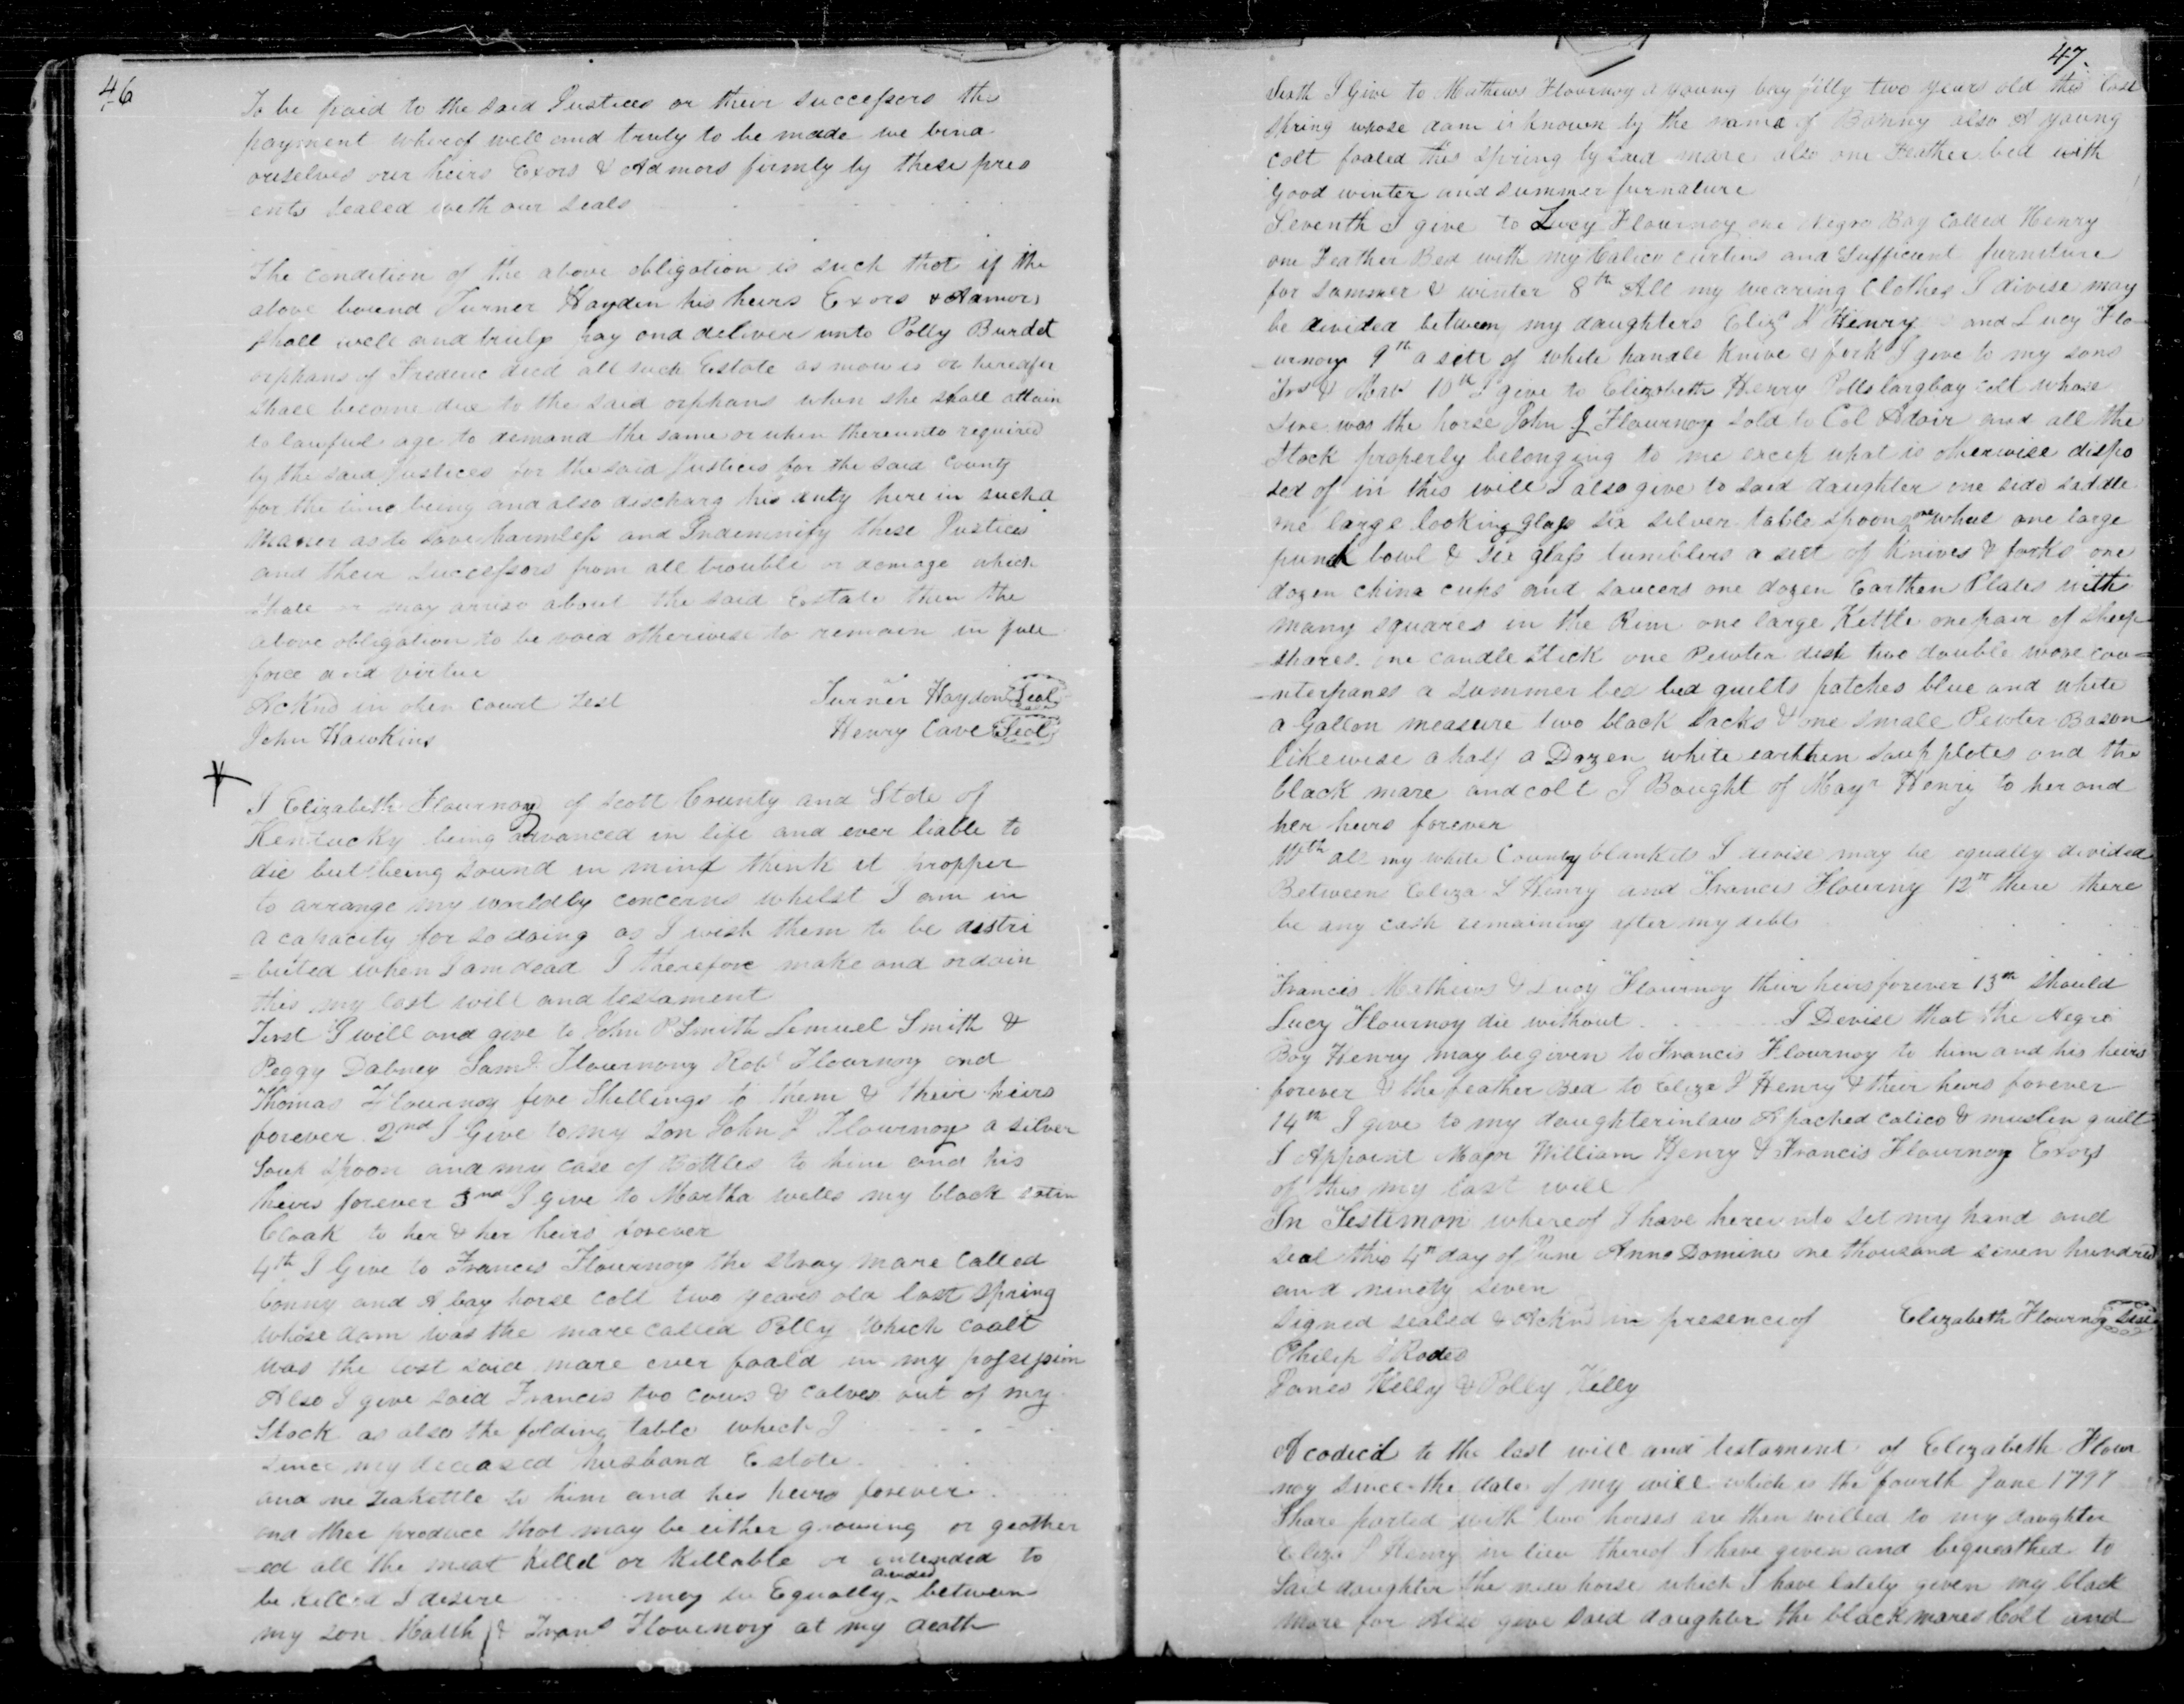 46
To be paid to the said Justices or their successors the
payment whereof well and truly to be made we bind
ourselves our heirs Exors & Admors firmly by these pres
=ents sealed with our seals
The condition of the above obligation is such that if the
above bound Turner Hayden his heirs Exors & Aamors
shall well and truly pay and deliver unto Polly Burdet
orphans of Frederic decd all such Estate as now is or hereafer
shall become due to the said orphans when she shall attain
to lawful age to demand the same or when thereunto required
by the said Justices for the said Justices for the said County
for the time being and also discharg his duty here in such a
manner as to save harmless and Indemnify these Justices
and their successors from all trouble or damage which
shall or may arrise about the said Estate then the
above obligation to be void otherwise to remain in full
force and virtue
Acknd in open court Test Turner Haydon Seal
John Hawkins Henry Cave Seal
I Elizabeth Flournoy of Scott County and State of
Kentucky being advanced in life and ever liable to
die but being sound in mind think it propper
to arrange my worldly concerns whilst I am in
a capacity for so doing as I wish them to be distri
=buted when I am dead I therefore make and ordain
this my last will and testament
First I will and give to John P Smith Lemuel Smith &
Peggy Dabney Saml Flournony Robt Flournoy and
Thomas Flournoy five Shellings to them & their heirs
forever 2nd I Give to my son John J Flournoy a silver
soup spoon and my case of Bottles to him and his
heirs forever 3nd I give to Martha wells my black satin
Cloak to her & her heirs forever
4th I Give to Frances Flournoy the stray mare called
bonny and A bay horse colt two years old last spring
whose dam was the mare called Polly Which coalt
was the last said mare ever foald in my possession
Also I give said Francis two cows & calves out of my
Stock as also the folding table which I
since my deceased husband Estate
and one teakettle to him and his heirs forever
and other produce that may be either growing or geather
=ed all the meat killd or killable or intended to
be killed I desire may be Equally divided between
my son Matth & Frans Flournoy at my death
47
Sixth I Give to Mathews Flournoy a young bay filly two years old this last
spring whose dam is known by the name of Bonny also A young
colt foaled this spring by said mare also one Feather bed with
good winter and summer furnature
Seventh I give to Lucy Flournoy one Negro Boy Called Henry
one Feather Bed with my Calico curtins and Sufficient furniture
for summer & winter 8th All my wearing Clothes I divise may
be divided between my daughters Eliza J Henry and Lucy Flo
=urnoy 9th a sett of white handle Knive & fork I give to my sons
Frs & Maw 10th I give to Elizabeth Henry Polls larg bay colt whose
sire was the horse John J Flournoy sold to Col Adair and all the
Stock properly belonging to me excep what is otherwise dispo
sed of in this will I also give to said daughter one side saddle
one large looking glass six silver table spoons one wheel one large
punch bowl & six glass tumblers a sett of knives & forks one
dozen china cups and saucers one dozen Earthen Plates with
many squares in the Rim one large Kettle one pair of sheep
=shares one candle stick one Pewter dish two double wove cou=
=nterpanes a summer bes bed quilts patches blue and white
a Gallon measure two black sacks & one small Pewter Bason
likewise a half a Dozen white earthen soup plates and the
black mare and colt I Bought of Mayr Henry to her and
her heirs forever
11th all my white County blankets I devise may be equally divided
Between Eliza L Henry and Francis Flourny 12th there there
be any cash remaining after my debts
Francis Mathews & Lucy Flournoy their heirs forever 13th should
Lucy Flournoy die without I Devise that the Negro
Boy Henry may be given to Francis Flournoy to him and his heirs
forever & the feather Bed to Eliza J Henry & their heirs forever
14th I give to my daughterinlaw A pached calico & muslin quilt
I Appoint Major William Henry & Francis Flournoy Exors
of this my last will
In Testimon whereof I have hereunto set my hand and
seal this 4th day of June Anno Domini one thousand seven hundred
and ninety seven
Signed sealed & Acknd in presence of Elizabeth Flournoy Seal
Philip Rodes
James Kelly & Polly Kelly
A codecil to the last will and testament of Elizabeth Flour
noy since the date of my will which is the fourth June 1797
I have parted with two horses are then willed to my daughter
Eliza J Henry in lieu thereof I have given and bequeathed to
said daughter the new horse which I have lately given my black
mare for Also give said daughter the black mares Colt and